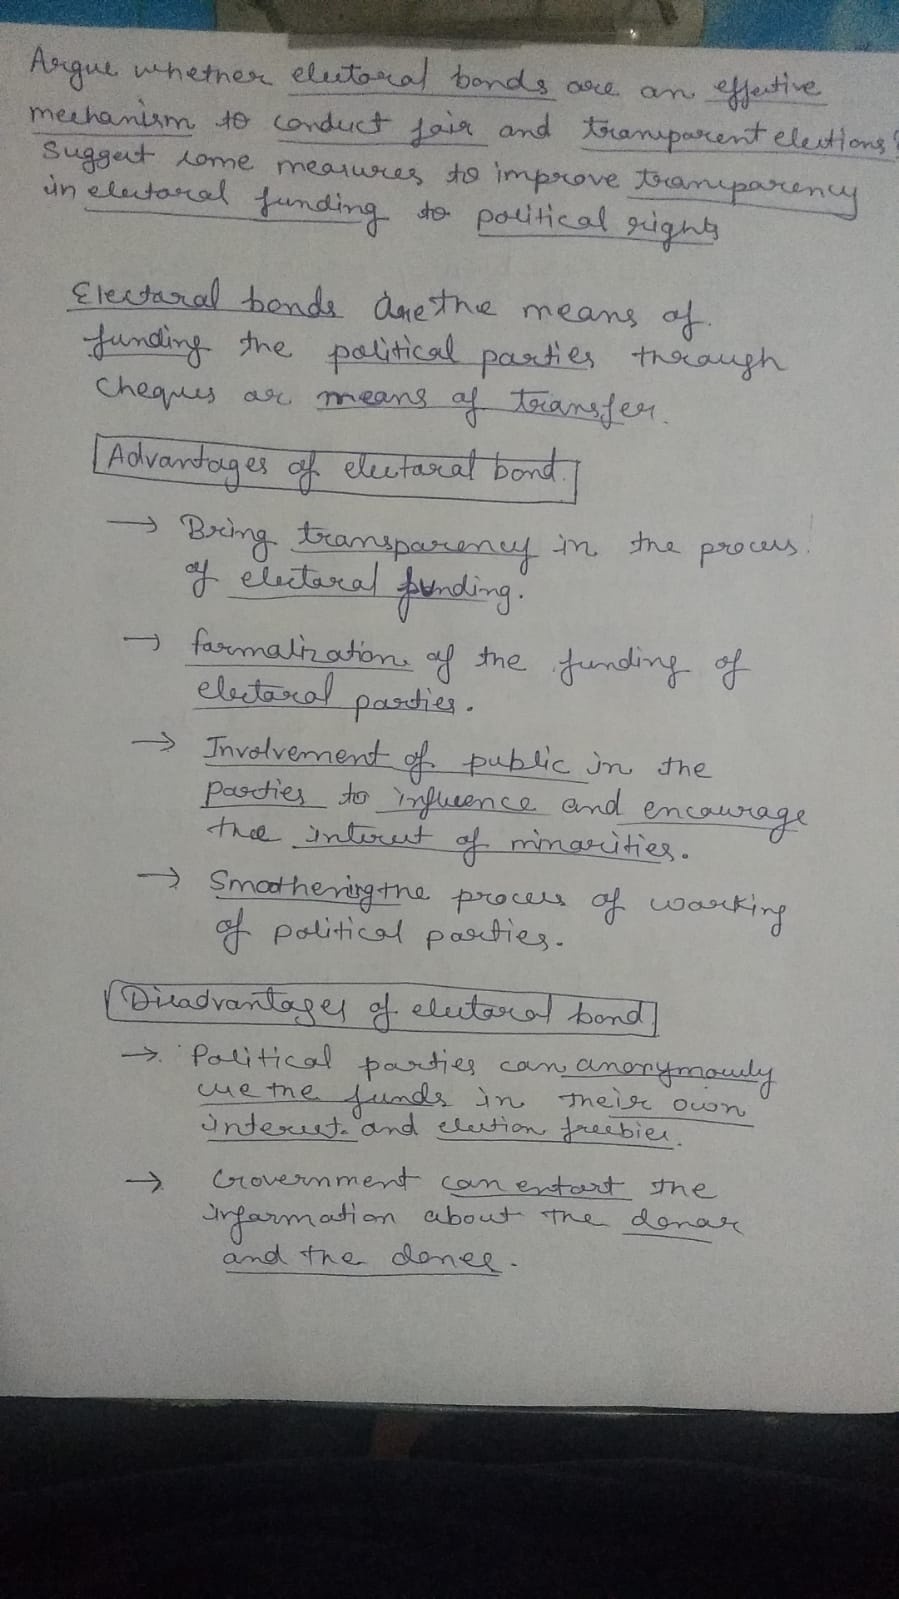 Argue whether electoral bonds are an effective
mechanism to conduct fair and transparent elections?
Suggest some measures to improve transparency
in electoral funding to political rights
Electoral bonds are the means of
funding the political parties through
cheques or means of transfer.
Advantages of electoral bond.
→ Bring transparency in the process
of electoral funding.
→ formalization of the funding of
electoral parties.
→ Involvement of public in the
parties to influence and encourage
the interest of minorities.
→ Smothering the process of working
of political parties.
Disadvantages of electoral bond
→ Political parties can anonymously
use the funds in their own
interest and election freebies.
→ Government can extort the
information about the donar
and the donee.